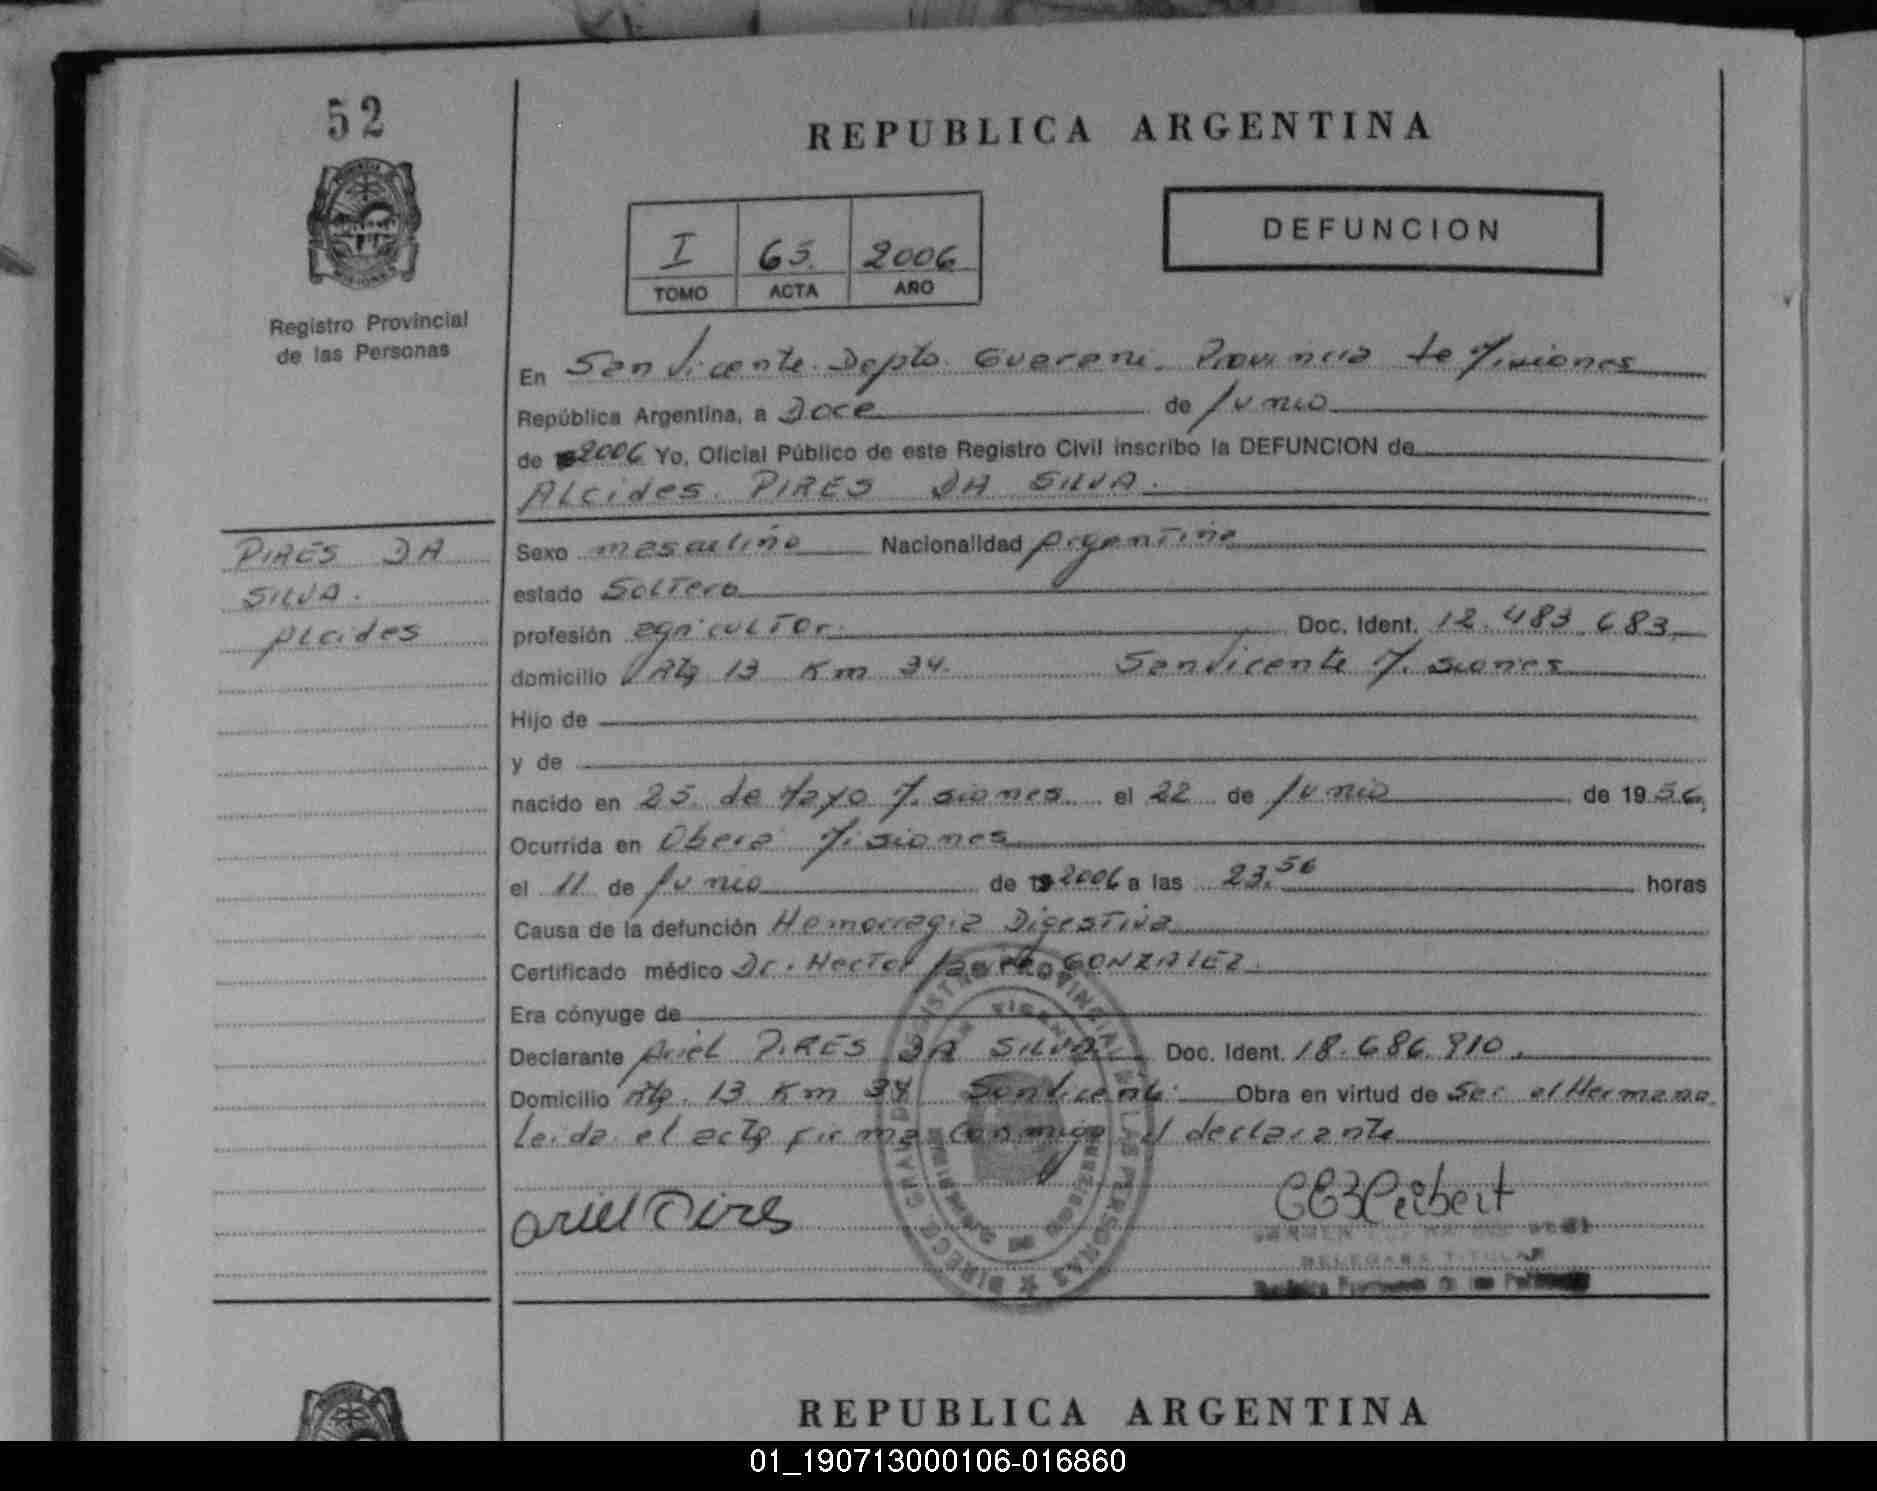 52
REPUBLICA ARGENTINA
I 65. 2006
TOMO ACTA AÑO
DEFUNCION
Registro Provincial
de las Personas
En San Vicente. Depto. Guarani. Provincia de Misiones
República Argentina, a Doce de Junio
de 2006 Yo, Oficial Público de este Registro Civil inscribo la DEFUNCION de
Alcides PIRES DA SILVA.
PIRES DA
SILVA.
Alcides
Sexo masculino Nacionalidad Argentina
estado Soltero
profesión agricultor. Doc. Ident. 12.483.683.
domicilio Rta 13 Km 34. San Vicente Misiones
Hijo de
y de
nacido en 25 de Mayo Misiones el 22 de Junio de 1956.
Ocurrida en Obera Misiones
el 11 de Junio de 2006 a las 23.56 horas
Causa de la defunción Hemorragia Digestiva
Certificado médico Dr. Hector GONZALEZ.
Era cónyuge de
Declarante Ariel PIRES DA SILVA Doc. Ident. 18.686.910.
Domicilio Rta. 13 Km 34 San Vicente Obra en virtud de Ser el Hermano.
Leida el acta firma conmigo el declarante
ariel Pires
DELEGADA TITULAR
REPUBLICA ARGENTINA
01_190713000106-016860